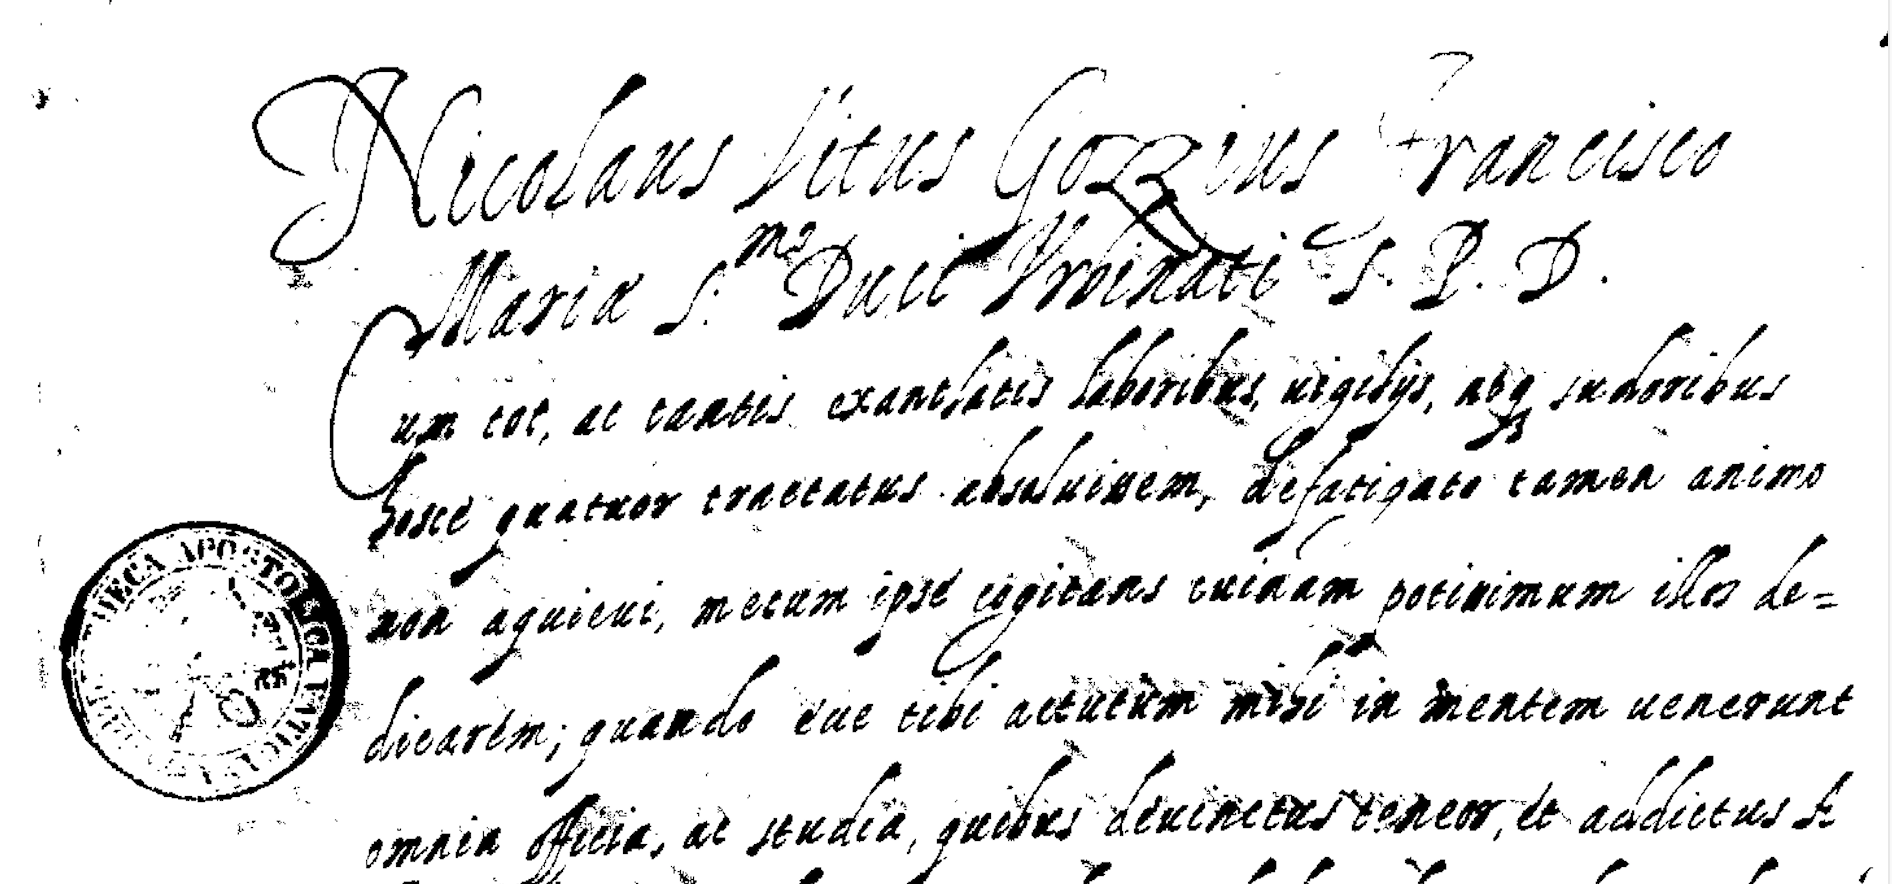 Nicolaus Vitus Gozzius Francisco
Mariæ S.mo Duci Urbinati S. P. D.
Cum tot, ac tantis exantlatis laboribus, uigilijs, atq3 sudoribus
hosce quatuor tractatus absoluissem, defatigato tamen animo
non aquieui, mecum ipse cogitans cuinam potissimum illos de=
dicarem; quando ecce tibi actutum mihi in mentem uenerunt
omnia officia, ac studia, quibus deuinctus teneor, et addictus
APOSTOLICA VATICANA